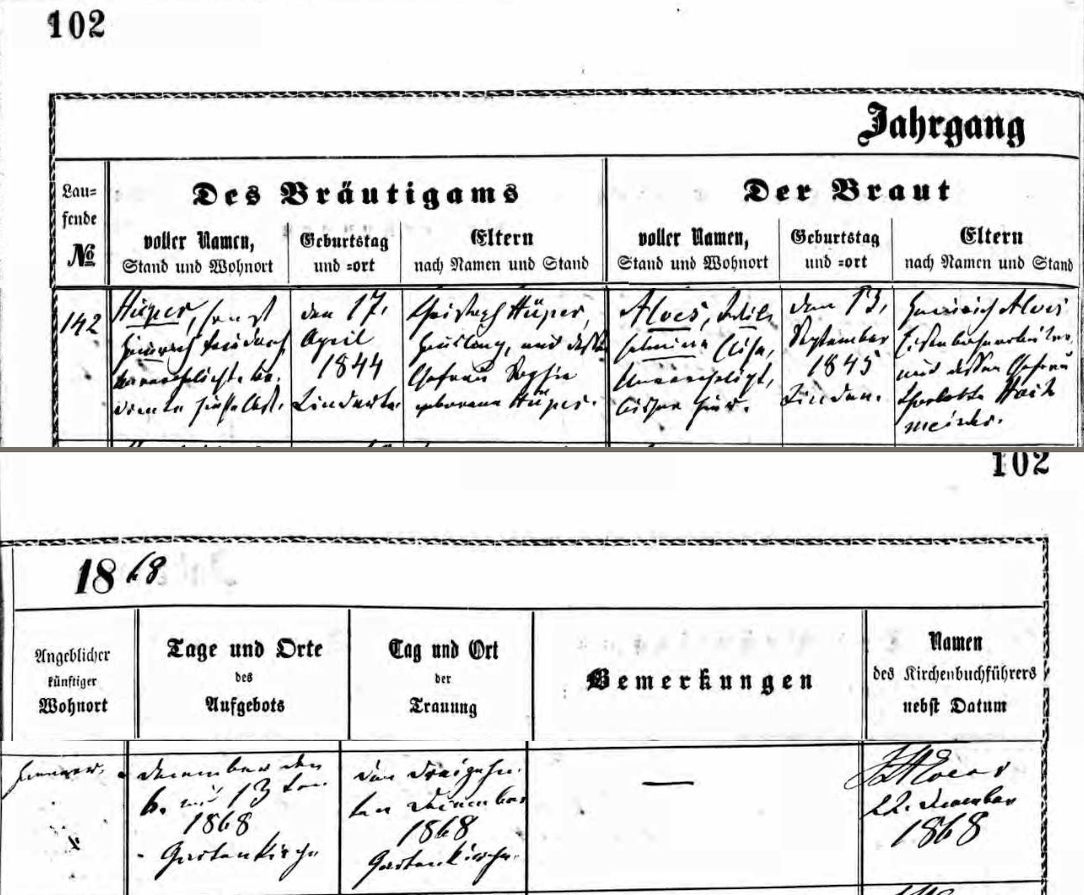 102
Jahrgang
Lau-
fende
№
Des Bräutigams
voller Namen,
Stand und Wohnort
Geburtstag
und =ort
Eltern
nach Namen und Stand
Der Braut
voller Namen,
Stand und Wohnort
Geburtstag
und =ort
Eltern
nach Namen und Stand
142
Hüper, Ernst
Heinrich
den 17.
April
1844
Linderte.
Christoph Hüper,
Häusling, und dessen
Ehefrau Sophie
geborene Hüper.
Alves, Wil-
helmine Elise,
unverehelicht,
den 13.
September
1845
Linden.
Heinrich Alves
Eisenbahnarbeiter,
und dessen Ehefrau
Charlotte
meister.
102
1868
Angeblicher
künftiger
Wohnort
Tage und Orte
des
Aufgebots
Tag und Ort
der
Trauung
Bemerkungen
Namen
des Kirchenbuchführers
nebst Datum
Hannover.
December den
6. und 13ten
1868
Gartenkirche
den dreizehn-
ten December
1868
Gartenkirche.
—
22. December
1868